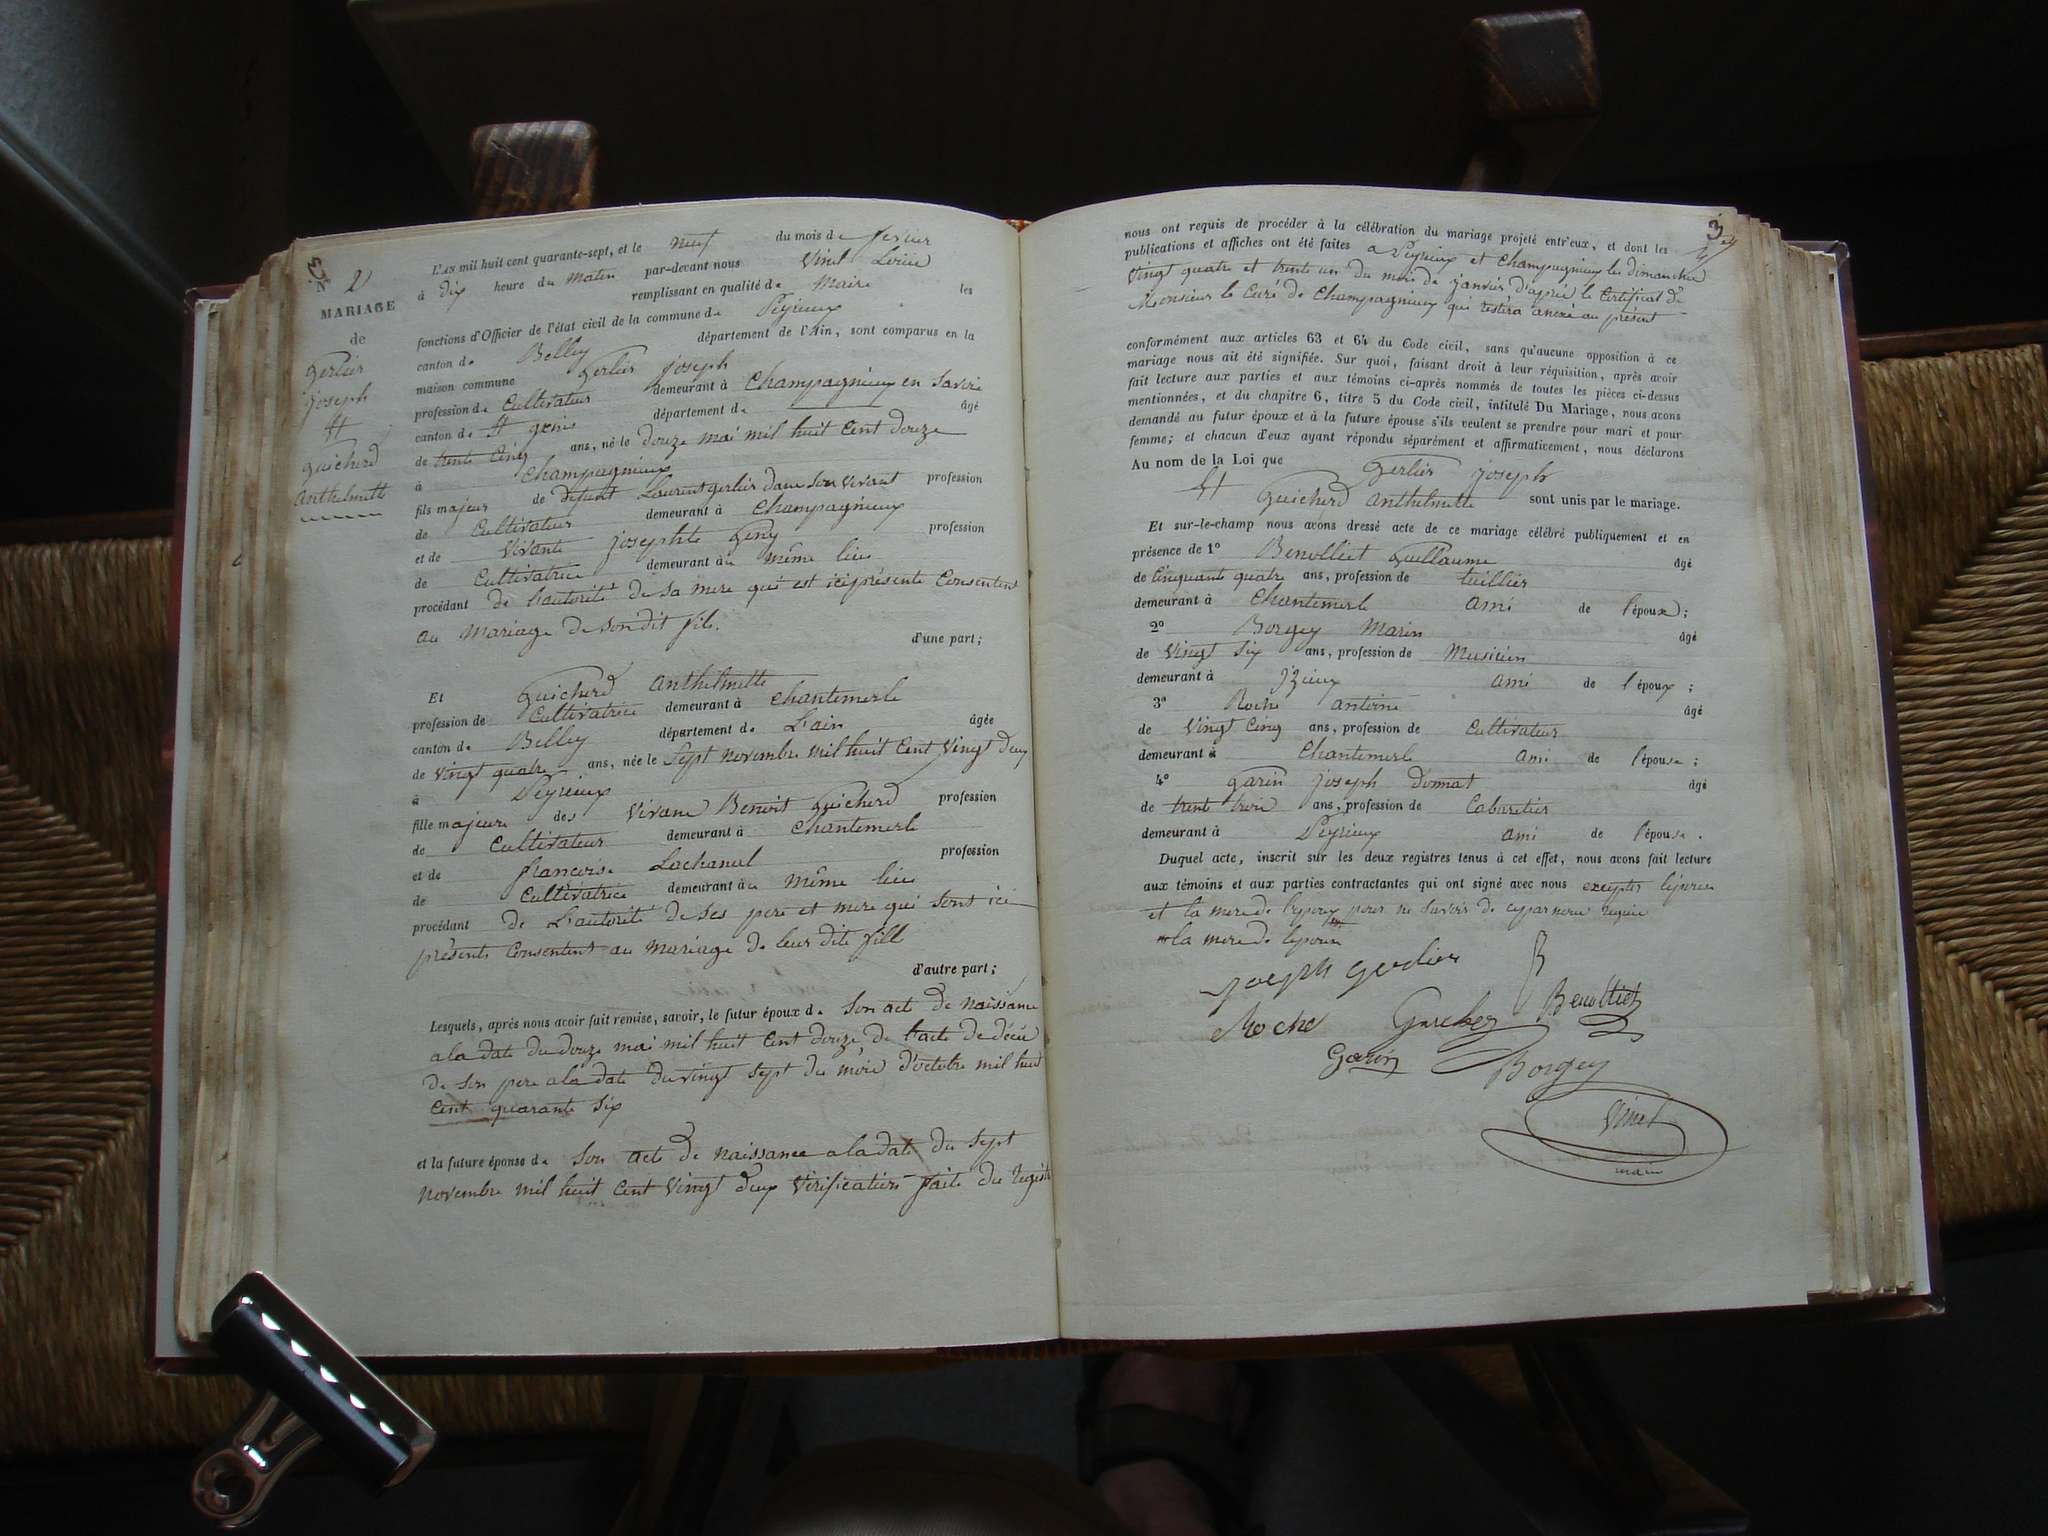 3
N 2
MARIAGE
de
Gerlier
joseph
Et
Guicherd
anthelmette
L'AN mil huit cent quarante-sept, et le neuf du mois de fevrier
à dix heure du matin par-devant nous Vinet Louis
remplissant en qualité de Maire les
fonctions d'Officier de l'état civil de la commune de Peyrieux
canton de Belley département de l'Ain, sont comparus en la
maison commune Gerlier joseph
profession de Cultivateur demeurant à Champagnieux en Savoie
canton de St genis département de âgé
de trente cinq ans, né le douze mai mil huit cent douze
à Champagnieux
fils majeur de défunt Laurent gerlier dans son vivant profession
de Cultivateur demeurant à Champagnieux
et de vivante josephte Geny profession
de Cultivatrice demeurant au même lieu
procédant de l'autorité de sa mere qui est ici présente Consentent
au Mariage de son dit fils. d'une part;
Et Guicherd anthelmette
profession de Cultivatrice demeurant à Chantemerle
canton de Belley département de L'ain âgée
de vingt quatre ans, née le Sept novembre mil huit cent vingt deux
à Peyrieux
fille majeure des vivans Benoit Guicherd profession
de Cultivateur demeurant à Chantemerle
et de françoise Lachanal profession
de Cultivatrice demeurant au même lieu
procédant de L'autorité de ses pere et mere qui sont ici
présents Consentent au mariage de leur dite fille
d'autre part;
Lesquels, après nous avoir fait remise, savoir, le futur époux de Son act de naissance
a la date du douze mai mil huit cent douze de l'acte de décès
de son pere a la date du vingt sept du mois d'octobre mil huit
cent quarante six
et la future épouse de son acte de naissance a la date du sept
novembre mil huit cent vingt deux verification faite du registre
3
nous ont requis de procéder à la célébration du mariage projeté entr'eux, et dont les
publications et affiches ont été faites a Peyrieux et Champagnieux les dimanches
vingt quatre et trente un du mois de janvier d'après le Certificat de
Monsieur le Curé de Champagnieux qui restera anexé au présent
conformément aux articles 63 et 64 du Code civil, sans qu'aucune opposition à ce
mariage nous ait été signifiée. Sur quoi, faisant droit à leur réquisition, après avoir
fait lecture aux parties et aux témoins ci-après nommés de toutes les pièces ci-dessus
mentionnées, et du chapitre 6, titre 5 du Code civil, intitulé Du Mariage, nous avons
demandé au futur époux et à la future épouse s'ils veulent se prendre pour mari et pour
femme; et chacun d'eux ayant répondu séparément et affirmativement, nous déclarons
Au nom de la Loi que Gerlier joseph
Et Guicherd anthelmette sont unis par le mariage.
Et sur-le-champ nous avons dressé acte de ce mariage célébré publiquement et en
présence de 1º Benolliet Guillaume âgé
de Cinquante quatre ans, profession de tuillier
demeurant à Chantemerle ami de l'époux;
2º Borgey Marin âgé
de vingt six ans, profession de Musicien
demeurant à Izieux ami de l'époux;
3º Roche antoine âgé
de vingt cinq ans, profession de Cultivateur
demeurant à Chantemerle ami de l'épouse;
4º Garin joseph Donnat âgé
de trente trois ans, profession de Cabaretier
demeurant à Peyrieux ami de l'épouse.
Duquel acte, inscrit sur les deux registres tenus à cet effet, nous avons fait lecture
aux témoins et aux parties contractantes qui ont signé avec nous excepter l'épouse
et la mere de l'epoux pour ne savoir de ce par nous requis
la mere de lepouse
joseph gerlier
Roche Guicherd Benolliet
Garin Borgey
Vinet
maire